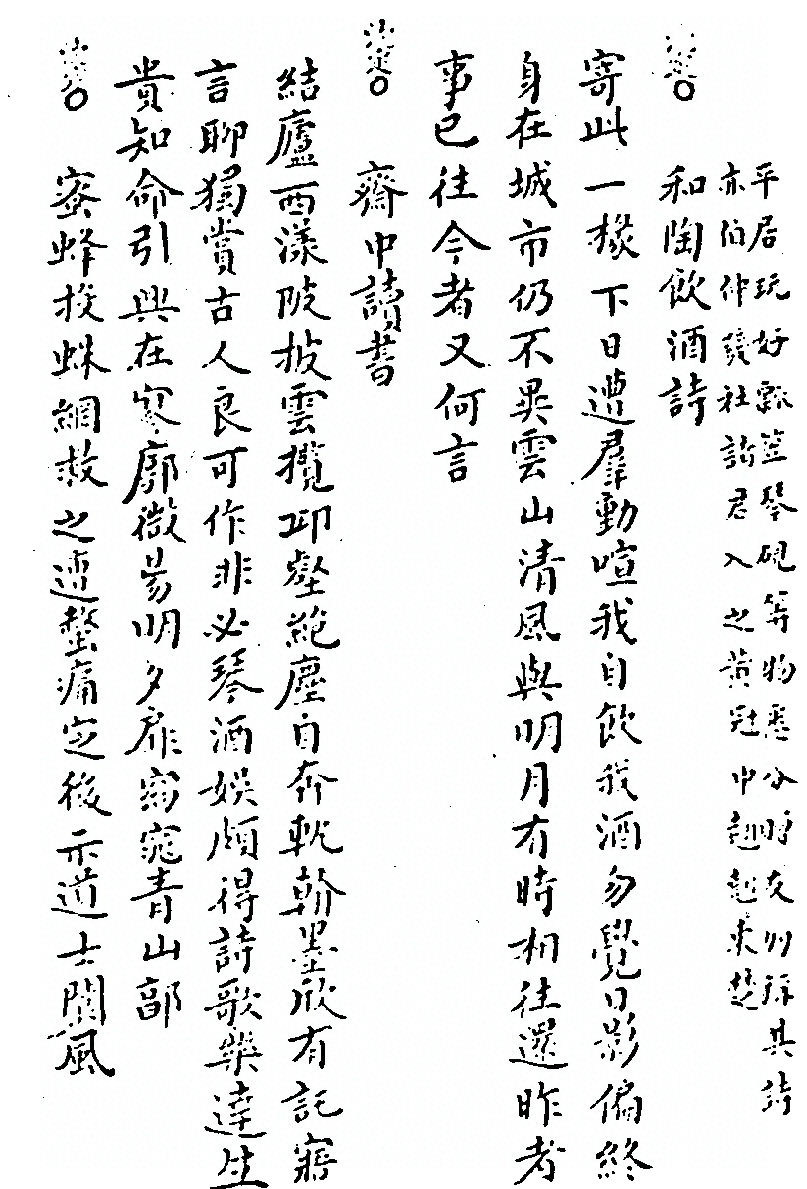 平居玩好瓢笠琴硯等物悉分時友別詠其詩
亦伯仲發社詒君入之黃冠中翹越東楚
和陶飲酒詩
寄此一椽下日遭羣動喧我自飲我酒勿覺日影偏終
身在城市仍不異雲山清風與明月有時相往還昨者
事已往今者又何言
齋中讀書
結廬西漾陂披雲攬邱壑絕塵自奔軼翰墨欣有託寤
言聊獨賞古人良可作非必琴酒娛頗得詩歌樂達生
貴知命引興在寥廓微易明夕扉窈窕青山郭
蜜蜂投蛛網救之遭螫痛定後示道士閬風